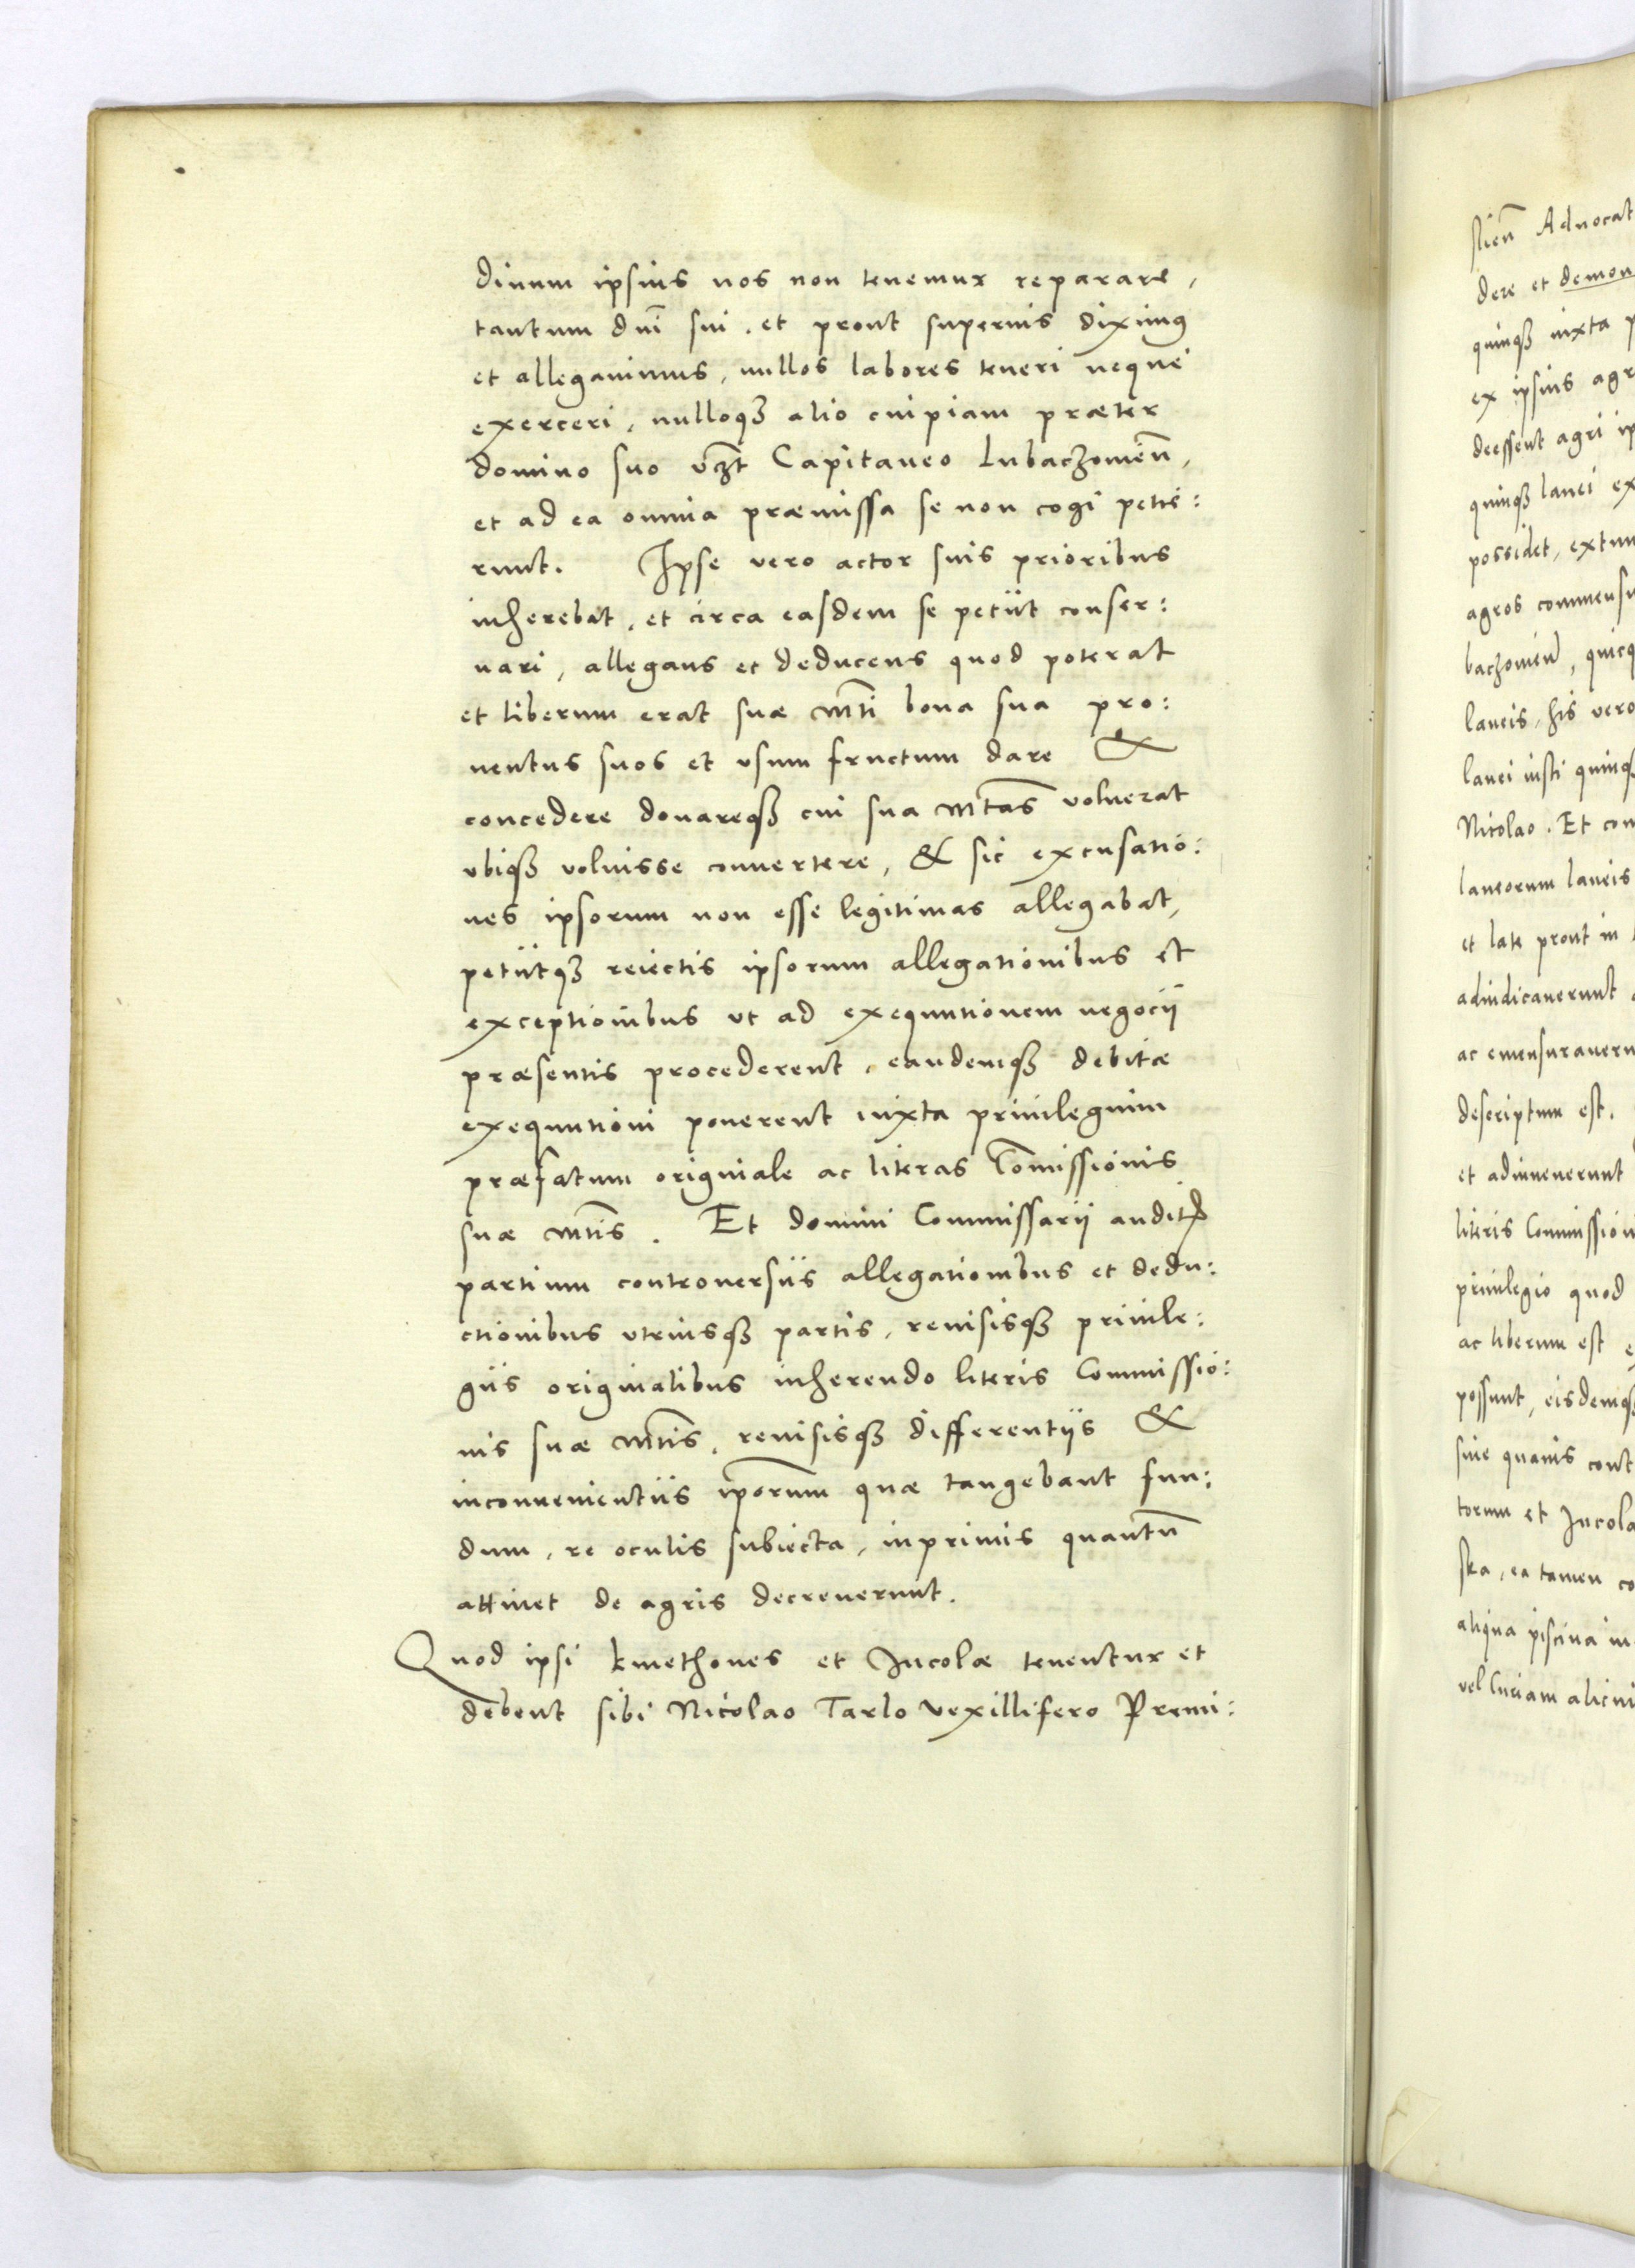 diuum ipsius nos non tenemur reparare,
tantum dni sui. et prout superius diximus
et allegauimus, nullos labores teneri neque
exerceri, nulloqȝ alio cuipiam præter
domino suo vȝt Capitaneo Lubaczouien,
et ad ea omnia præmissa se non cogi petie:
runt. Ipse vero actor suis prioribus
inherebat, et circa easdem se petijt conser:
uari, allegans et deducens quod poterat
et liberum erat suæ Mti bona sua pro:
uentus suos et vsum fructum dare &
concedere donareqȝ cui sua Mtas voluerat
vbiqȝ voluisse conuertere, & sic excusatio:
nes ipsorum non esse legitimas allegabat,
petijtqȝ reiectis ipsorum allegationibus et
exceptionibus vt ad exequutionem negocij
præsentis procederent, eandemqȝ debitæ
exequutioni ponerent iuxta priuilegium
præfatum originale ac literas Comissionis
suæ Mtis. Et domini Commissarij auditis
partium controuersijs allegationibus et dedu:
ctionibus vtriusqȝ partis, reuisisqȝ priuile:
gijs originalibus inherendo literis Commissio:
nis suæ Mtis, reuisisqȝ differentijs &
inconuenientijs iporum quæ tangebant fun:
dum, re oculis subiecta, inprimis quantu
attinet de agris decreuerunt.
Quod ipsi kmethones et Incolæ tenentur et
debent sibi Nicolao Tarlo Vexillifero Premi:
slien Aduocat
dere et demon
quinqȝ iuxta p
ex ipsius agr
deessent agri ip
quinqȝ lanei ex
possidet, extun
agros commensu
baczouien, quicq
laneis, his vero
lanei iusti quinqȝ
Nicolao. Et con
laneorum laneis
et late prout in
adiudicauerunt
ac emensurauerun
descriptum est.
et adinuenerunt
literis Commission
priuilegio quod
ac liberum est e
possunt, eisdemqȝ
siue quauis cont
torum et Incola
ska, ea tamen co
aliqua piscina in
vel Curiam alicui